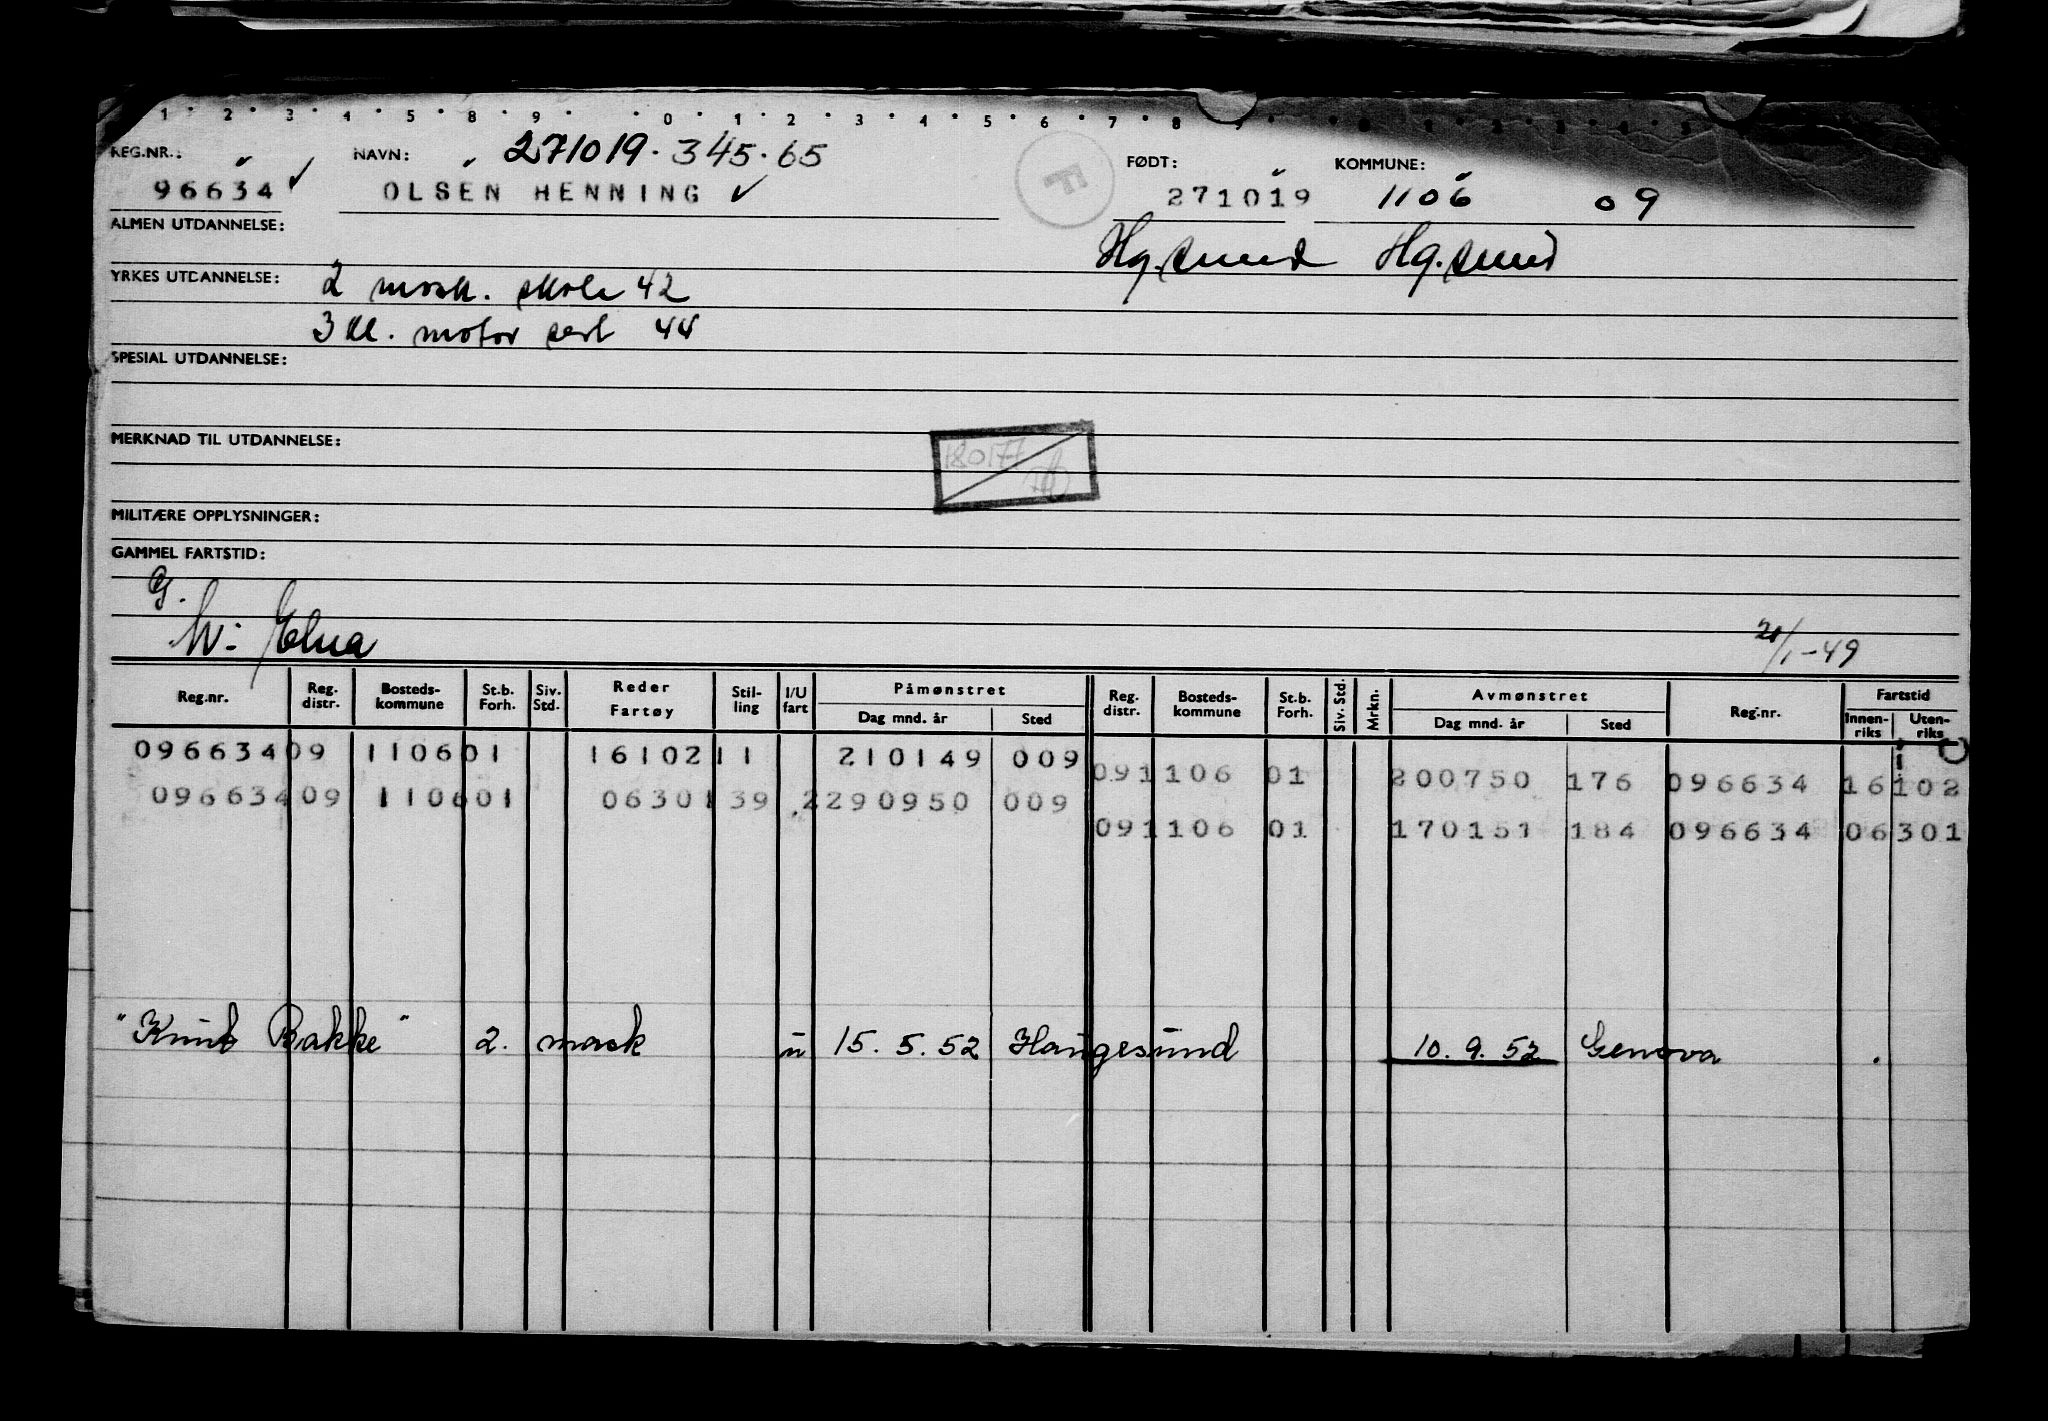 1 2 3 4 5 8 9 0 1 2 3 4 5 6 7 8 9
REG.NR.: NAVN: 271019.345.65 FØDT: KOMMUNE:
96634 OLSEN HENNING F 271019 1106 09
ALMEN UTDANNELSE: Hg.sund Hg.sund
YRKES UTDANNELSE: 2 mask. skole 42
3 kl. motor sert 44
SPESIAL UTDANNELSE:
MERKNAD TIL UTDANNELSE: 180177
MILITÆRE OPPLYSNINGER:
GAMMEL FARTSTID:
G.
M: Elna 20/1-49
Reg.nr. Reg. distr. Bosteds- kommune St.b. Forh. Siv. Std. Reder Fartøy Stil- ling I/U fart Påmønstret Dag mnd. år Sted Reg. distr. Bosteds- kommune St.b. Forh. Siv. Std. Mrkn. Avmønstret Dag mnd. år Sted Reg.nr. Fartstid Innen- riks Uten- riks
096634 09 1106 01 16102 11 210149 009
09 1106 01 200750 176 096634 16102
096634 09 1106 01 06301 39 2 290950 009
09 1106 01 170151 184 096634 06301
"Knut Bakke" 2. mask u 15.5.52 Haugesund 10.9.52 Genova